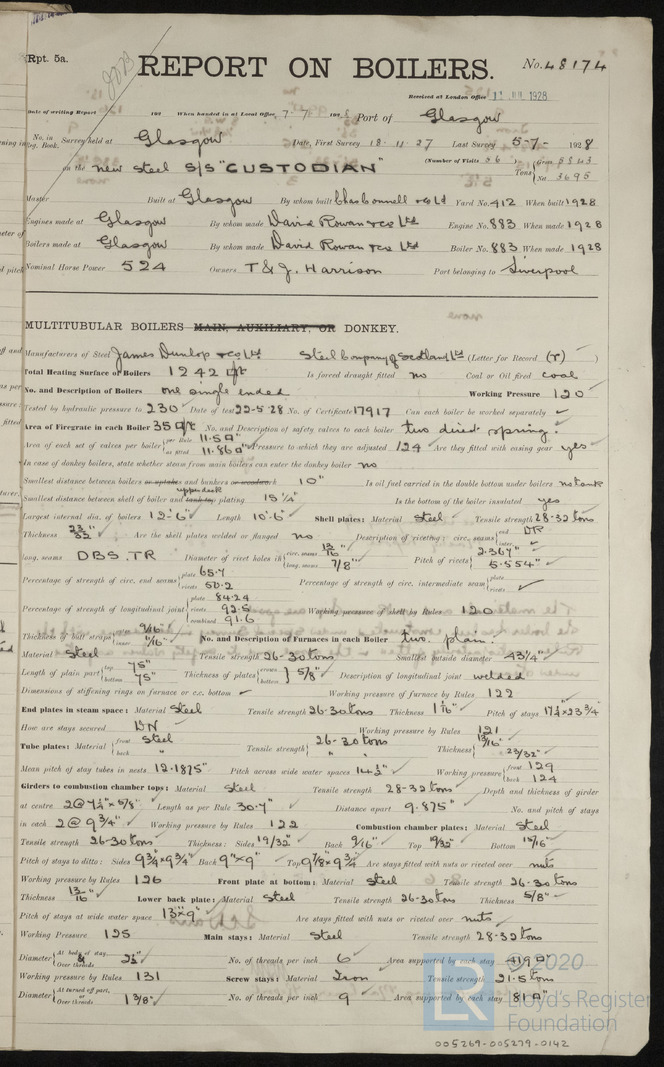 Rpt. 5a.
REPORT ON BOILERS.
No. 48174
Received at London Office 11 JUL 1928
Date of writing Report 191 When handed in at Local Office 7-7 1928 Port of Glasgow
No. in Reg. Book. Survey held at Glasgow Date, First Survey 18-11-27 Last Survey 5-7- 1928
on the new steel S/S "CUSTODIAN" (Number of Visits 56) Tons Gross 5843 Net 3695
Master Built at Glasgow By whom built Chas Connell & Co Ld Yard No. 412 When built 1928
Engines made at Glasgow By whom made David Rowan & Co Ltd Engine No. 883 When made 1928
Boilers made at Glasgow By whom made David Rowan & Co Ltd Boiler No. 883 When made 1928
Nominal Horse Power 524 Owners T & J. Harrison Port belonging to Liverpool
MULTITUBULAR BOILERS MAIN, AUXILIARY, OR DONKEY.
Manufacturers of Steel James Dunlop & Co Ltd Steel Company of Scotland Ltd (Letter for Record (r) )
Total Heating Surface of Boilers 1242 □ft Is forced draught fitted no Coal or Oil fired coal
No. and Description of Boilers one single ended Working Pressure 120
Tested by hydraulic pressure to 230 Date of test 22-5-28 No. of Certificate 17917 Can each boiler be worked separately ✓
Area of Firegrate in each Boiler 35 □ft No. and Description of safety valves to each boiler two direct spring.
Area of each set of valves per boiler per Rule 11.5 □" as fitted 11.86 □" Pressure to which they are adjusted 124 Are they fitted with easing gear yes
In case of donkey boilers, state whether steam from main boilers can enter the donkey boiler no
Smallest distance between boilers or uptakes and bunkers or woodwork 10" Is oil fuel carried in the double bottom under boilers no tank
Smallest distance between shell of boiler and tank top upper deck plating 15 1/4" Is the bottom of the boiler insulated yes
Largest internal dia. of boilers 12'-6" Length 10'-6" Shell plates: Material Steel Tensile strength 28-32 tons
Thickness 23/32" Are the shell plates welded or flanged no Description of riveting: circ. seams end DR inter. ✓
long. seams DBS. TR Diameter of rivet holes in circ. seams 13/16" long. seams 7/8" Pitch of rivets 2.367" 5.554"
Percentage of strength of circ. end seams plate 65.7 rivets 50.2 Percentage of strength of circ. intermediate seam plate rivets ✓
Percentage of strength of longitudinal joint plate 84.24 rivets 92.5 combined 91.6 Working pressure of shell by Rules 120
Thickness of butt straps outer 9/16" inner 9/16" No. and Description of Furnaces in each Boiler two. plain.
Material Steel Tensile strength 26-30 tons Smallest outside diameter 43 1/4"
Length of plain part top 75" bottom 75" Thickness of plates crown bottom 5/8" Description of longitudinal joint welded
Dimensions of stiffening rings on furnace or c.c. bottom ✓ Working pressure of furnace by Rules 122
End plates in steam space: Material Steel Tensile strength 26-30 tons Thickness 1 1/16" Pitch of stays 17 1/4 x 23 3/4
How are stays secured DN Working pressure by Rules 121
Tube plates: Material front Steel back " Tensile strength 26-30 tons " Thickness 13/16" 23/32"
Mean pitch of stay tubes in nests 12.1875" Pitch across wide water spaces 14 1/2" Working pressure front 129 back 124
Girders to combustion chamber tops: Material Steel Tensile strength 28-32 tons Depth and thickness of girder
at centre 2@7 1/4" x 5/8" Length as per Rule 30.7" Distance apart 9.875" No. and pitch of stays
in each 2 @ 9 3/4" Working pressure by Rules 122 Combustion chamber plates: Material Steel
Tensile strength 26-30 tons Thickness: Sides 19/32" Back 9/16" Top 19/32" Bottom 15/16"
Pitch of stays to ditto: Sides 9 3/4 x 9 3/4" Back 9" x 9" Top 9 7/8 x 9 3/4 Are stays fitted with nuts or riveted over nuts
Working pressure by Rules 126 Front plate at bottom: Material Steel Tensile strength 26-30 tons
Thickness 13/16" Lower back plate: Material Steel Tensile strength 26-30 tons Thickness 5/8"
Pitch of stays at wide water space 13" x 9" Are stays fitted with nuts or riveted over nuts
Working Pressure 125 Main stays: Material Steel Tensile strength 28-32 tons
Diameter At body of stay, or Over threads 2 1/2" No. of threads per inch 6 Area supported by each stay 419 □"
Working pressure by Rules 131 Screw stays: Material Iron Tensile strength 21.5 tons
Diameter At turned off part, or Over threads 1 3/8" No. of threads per inch 9 Area supported by each stay 81 □"
© 2020
LR
Lloyd's Register
Foundation
005269-005279-0142